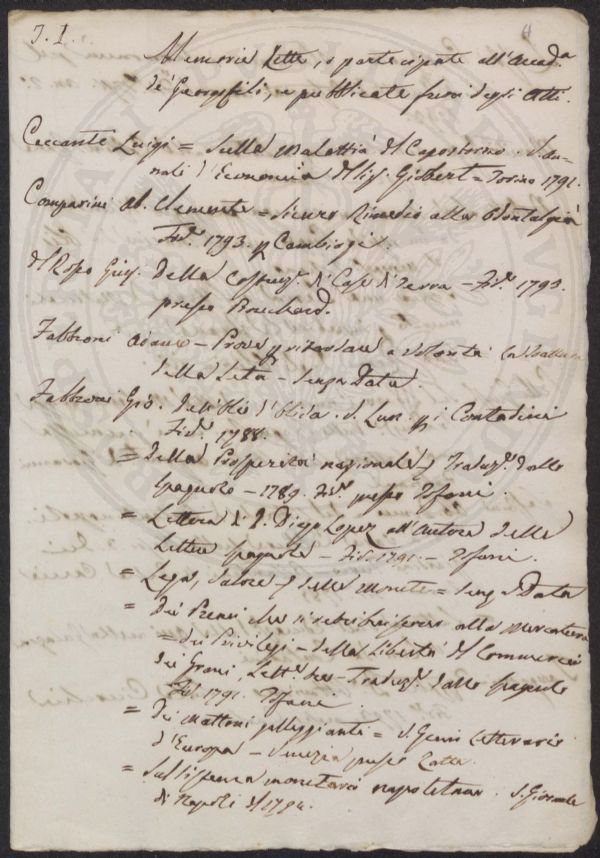 J. I.
Memorie Lette, o partecipate all'Accad.a
de' Georgofili, e pubblicate fuori degli Atti.
Ceccanti Luigi = Sulla malattia del Capostorno.
nali d'Economia del Sig. Gilbert = Torino 1791.
Comparini Ab. Clemente = Sicuro Rimedio alla Odontalgia
Fir. 1793. p Cambiagi.
del Rosso Gius. Della costruz. di Case di Terra - Fir. 1793.
presso Bouchard.
Fabbroni Adamo - Prove p ritardare a volontà
della Seta - Senza Data
Fabbroni Gio. p i Contadini
Fir. 1788.
= Della Prosperità nazionale, Traduz. dallo
Spagnolo - 1789. Fir. presso Tofani.
= Lettera di D. Diego Lopez all'Autore delle
Lettere Spagnole - Fir. 1791 - Tofani.
= Lega, Valore delle Monete = Senza Data
= Dei Premi che si alla mercatura
= dei Privilegi - della Libertà del Commercio
dei Grani, Lett. tre - Traduz. dallo Spagnolo
Fir. 1791. Tofani
= Dei Mattoni galleggianti = Letterario
d'Europa - Venezia presso Zatta.
= Sul sistema monetario napoletano. Giornale
di Napoli 1794.